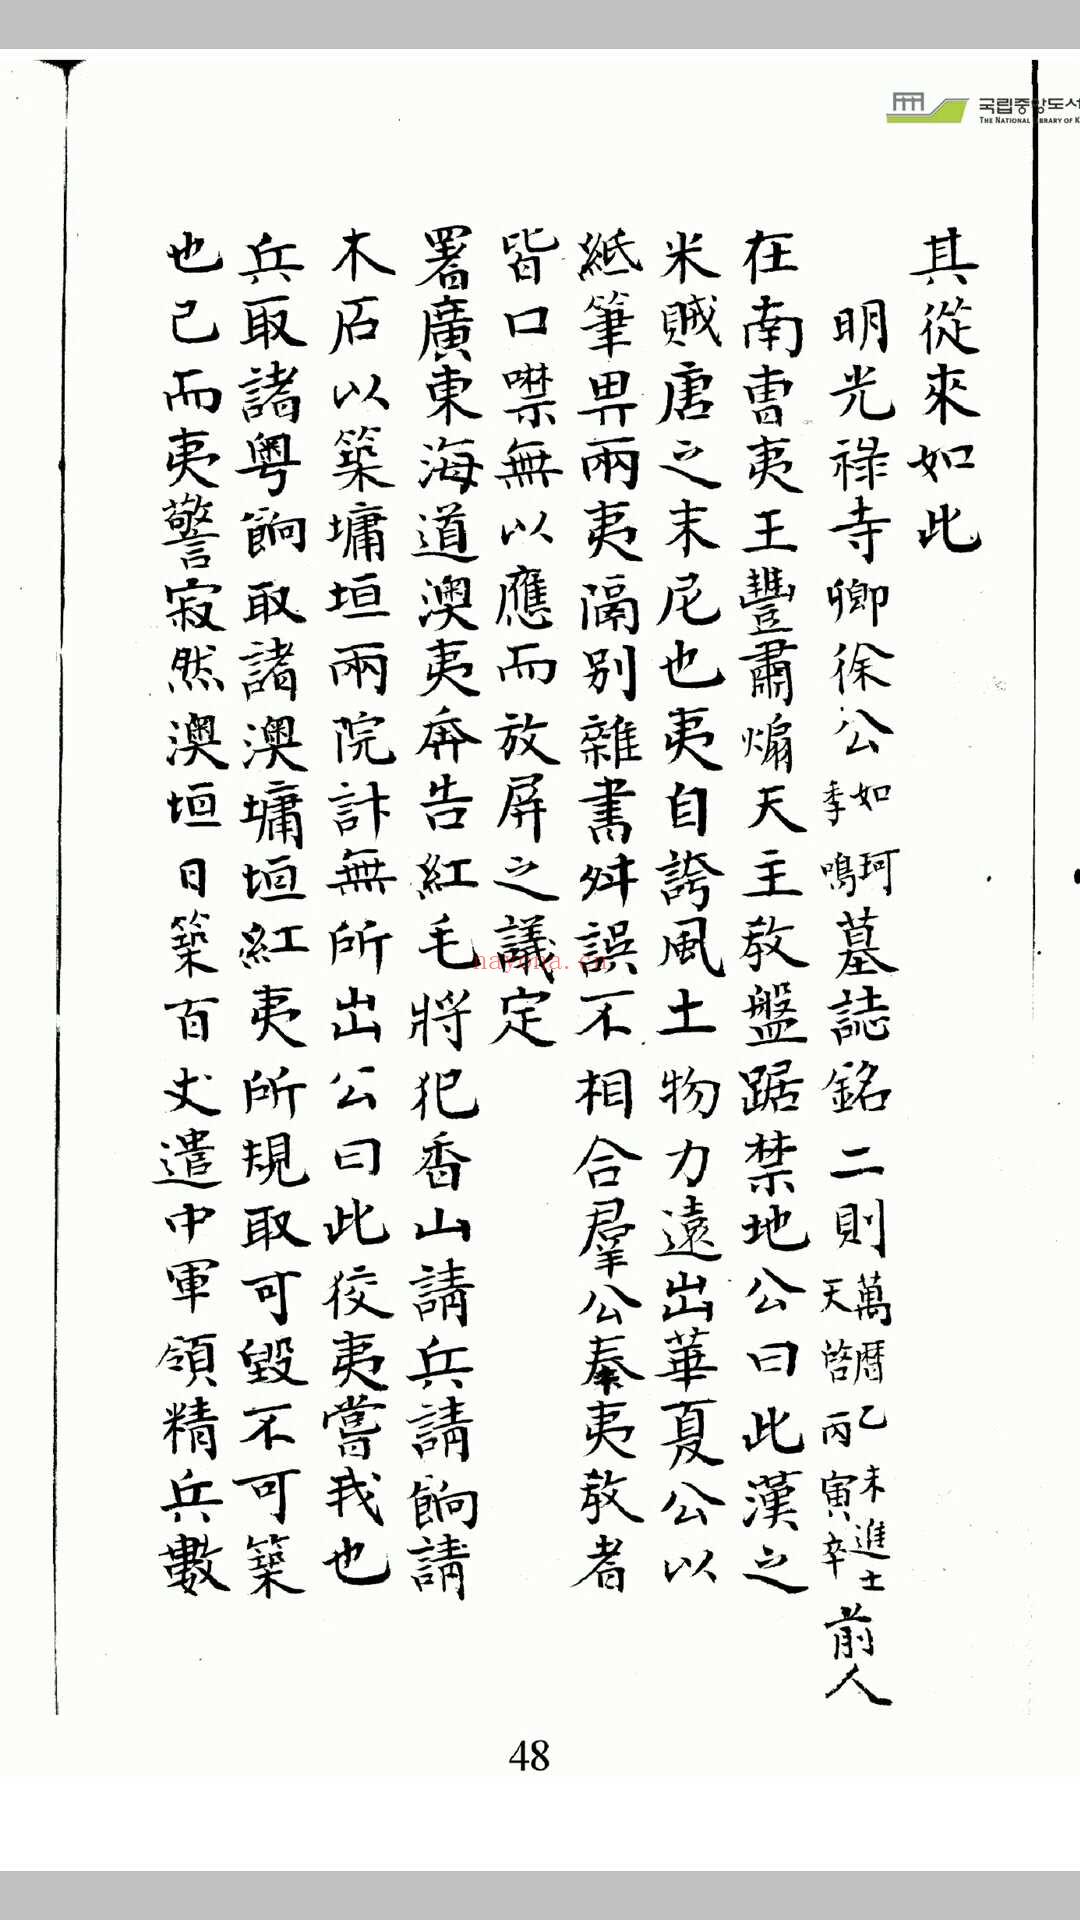 국립중앙도서
THE NATIONAL LIBRARY OF K
其從來如此
明光祿寺卿徐公如珂季鳴墓誌銘二則萬曆乙未進士天啓丙寅卒前人
在南曹夷王豐肅煽天主敎盤踞禁地公曰此漢之
米賊唐之末尼也夷自誇風土物力遠出華夏公以
紙筆畀兩夷隔別雜書舛誤不相合羣公奏夷敎者
皆口噤無以應而放屏之議定
署廣東海道澳夷奔告紅毛將犯香山請兵請餉請
木石以築墉垣兩院計無所出公曰此狡夷嘗我也
兵取諸粤餉取諸澳墉垣紅夷所規取可毀不可築
也已而夷警寂然澳垣日築百丈遣中軍領精兵數
nayona.cn
48